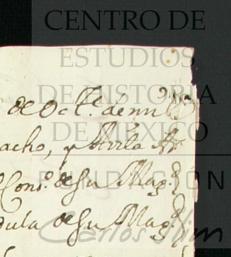 CENTRO DE
ESTUDIOS
DE HISTORIA
DE MEXICO
de Oct.e de mil
acho, y Avila
Cons. de Su Mag.
dula de Su Mag.
Carlos Slim